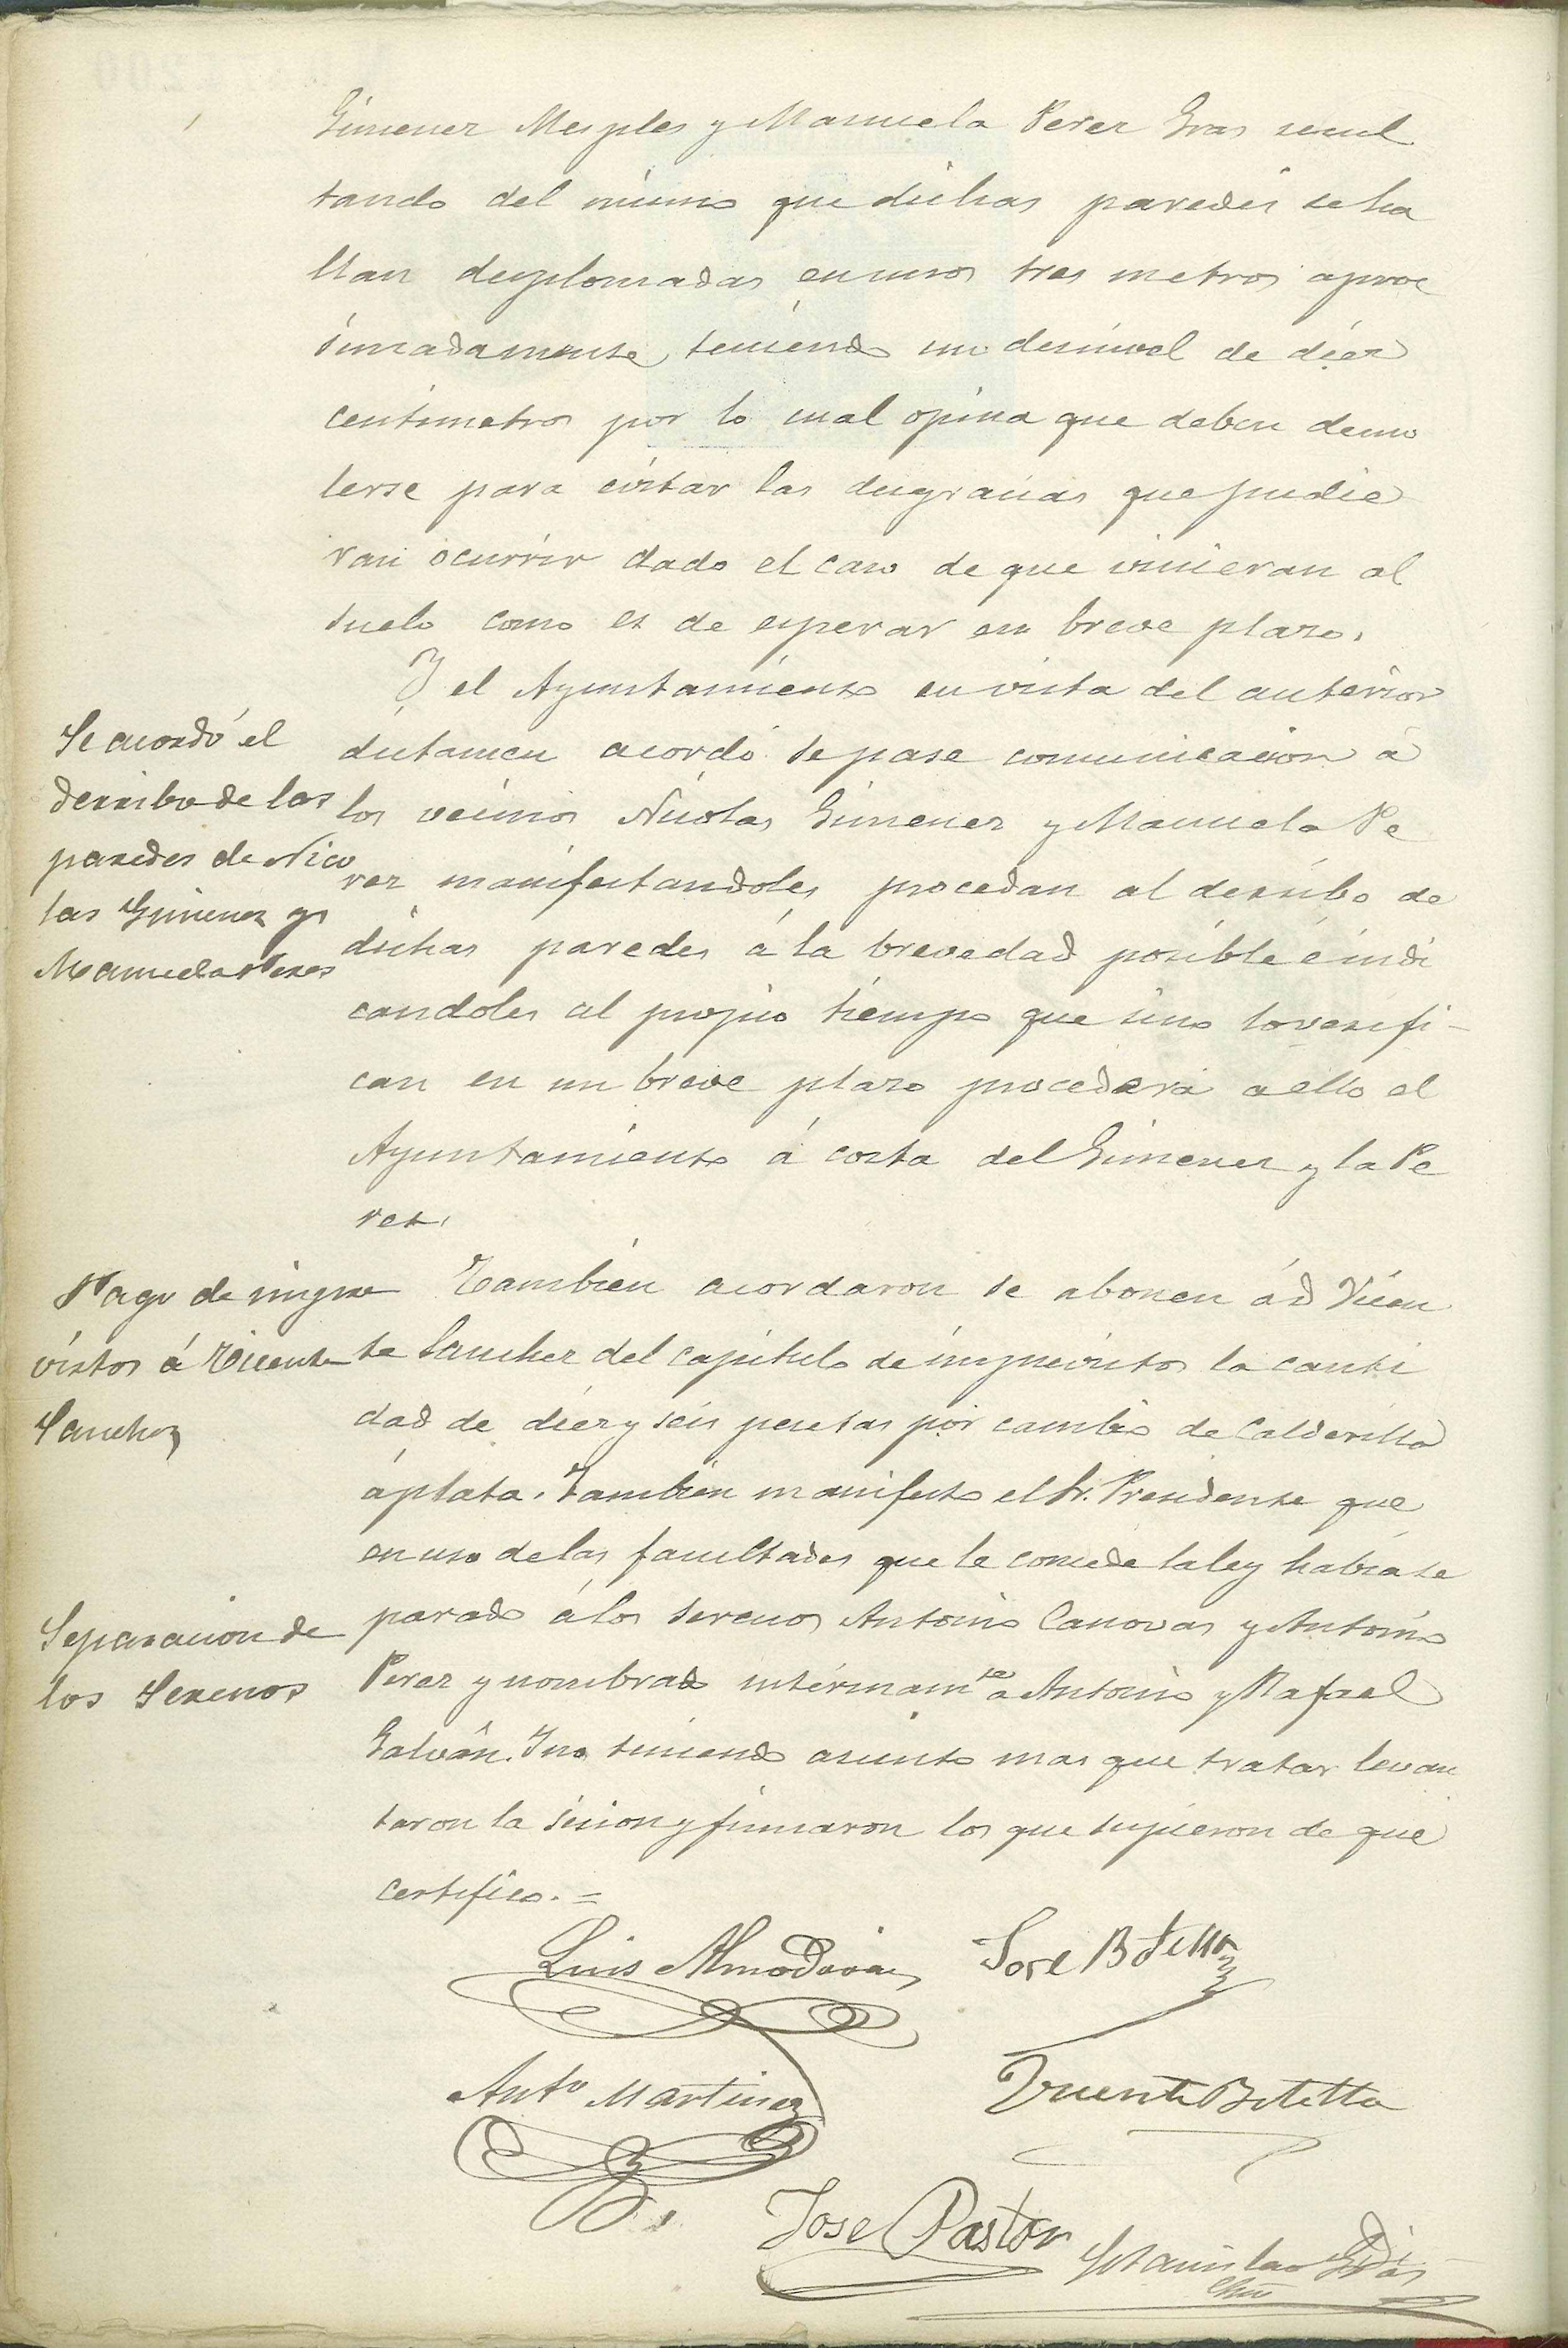 Gimenez Mesples y Manuela Perez Gras resul
tando del mismo que dichas paredes se ha
llan desplomadas en unos tres metros aproc
simadamente, teniendo un desnivel de diez
centimetros por lo cual opina que deben demo
lerse para evitar las desgracias que pudie
ran ocurrir dado el caso de que vinieran al
suelo como es de esperar en breve plazo.
Y el Ayuntamiento en vista del anterior
Se acordó el
derribo de las
paredes de Nico
las Gimenez y
Manuela Perez
dictamen acordó se pase comunicacion á
los vecinos Nicolas Gimenez y Manuela Pe
rez manifestandoles procedan al derribo de
dichas paredes á la brevedad posible é indi
candoles al propio tiempo que sino lo verifi-
can en un breve plazo procederá a ello el
Ayuntamiento á costa del Gimenez y la Pe
rez.
Pago de impre
vistos á Vicente
Sanchez
Tambien acordaron se abonen á D Vicen
te Sanchez del capitulo de imprevistos la canti
dad de diez y seis pesetas por cambio de calderilla
á plata. Tambien manifesto el Sr. Presidente que
en uso de las facultades que le concede la ley habia se
Separacion de
los Serenos
parado á los serenos Antonio Canovas y Antonio
Perez y nombrado interinamte a Antonio y Rafael
Galván. Y no teniendo asunto mas que tratar levan
taron la sesion y firmaron los que supieron de que
certifico.=
Luis Almodovar
Jose Botella
Anto Martinez
Vicente Botella
Jose Pastor
Estanislao